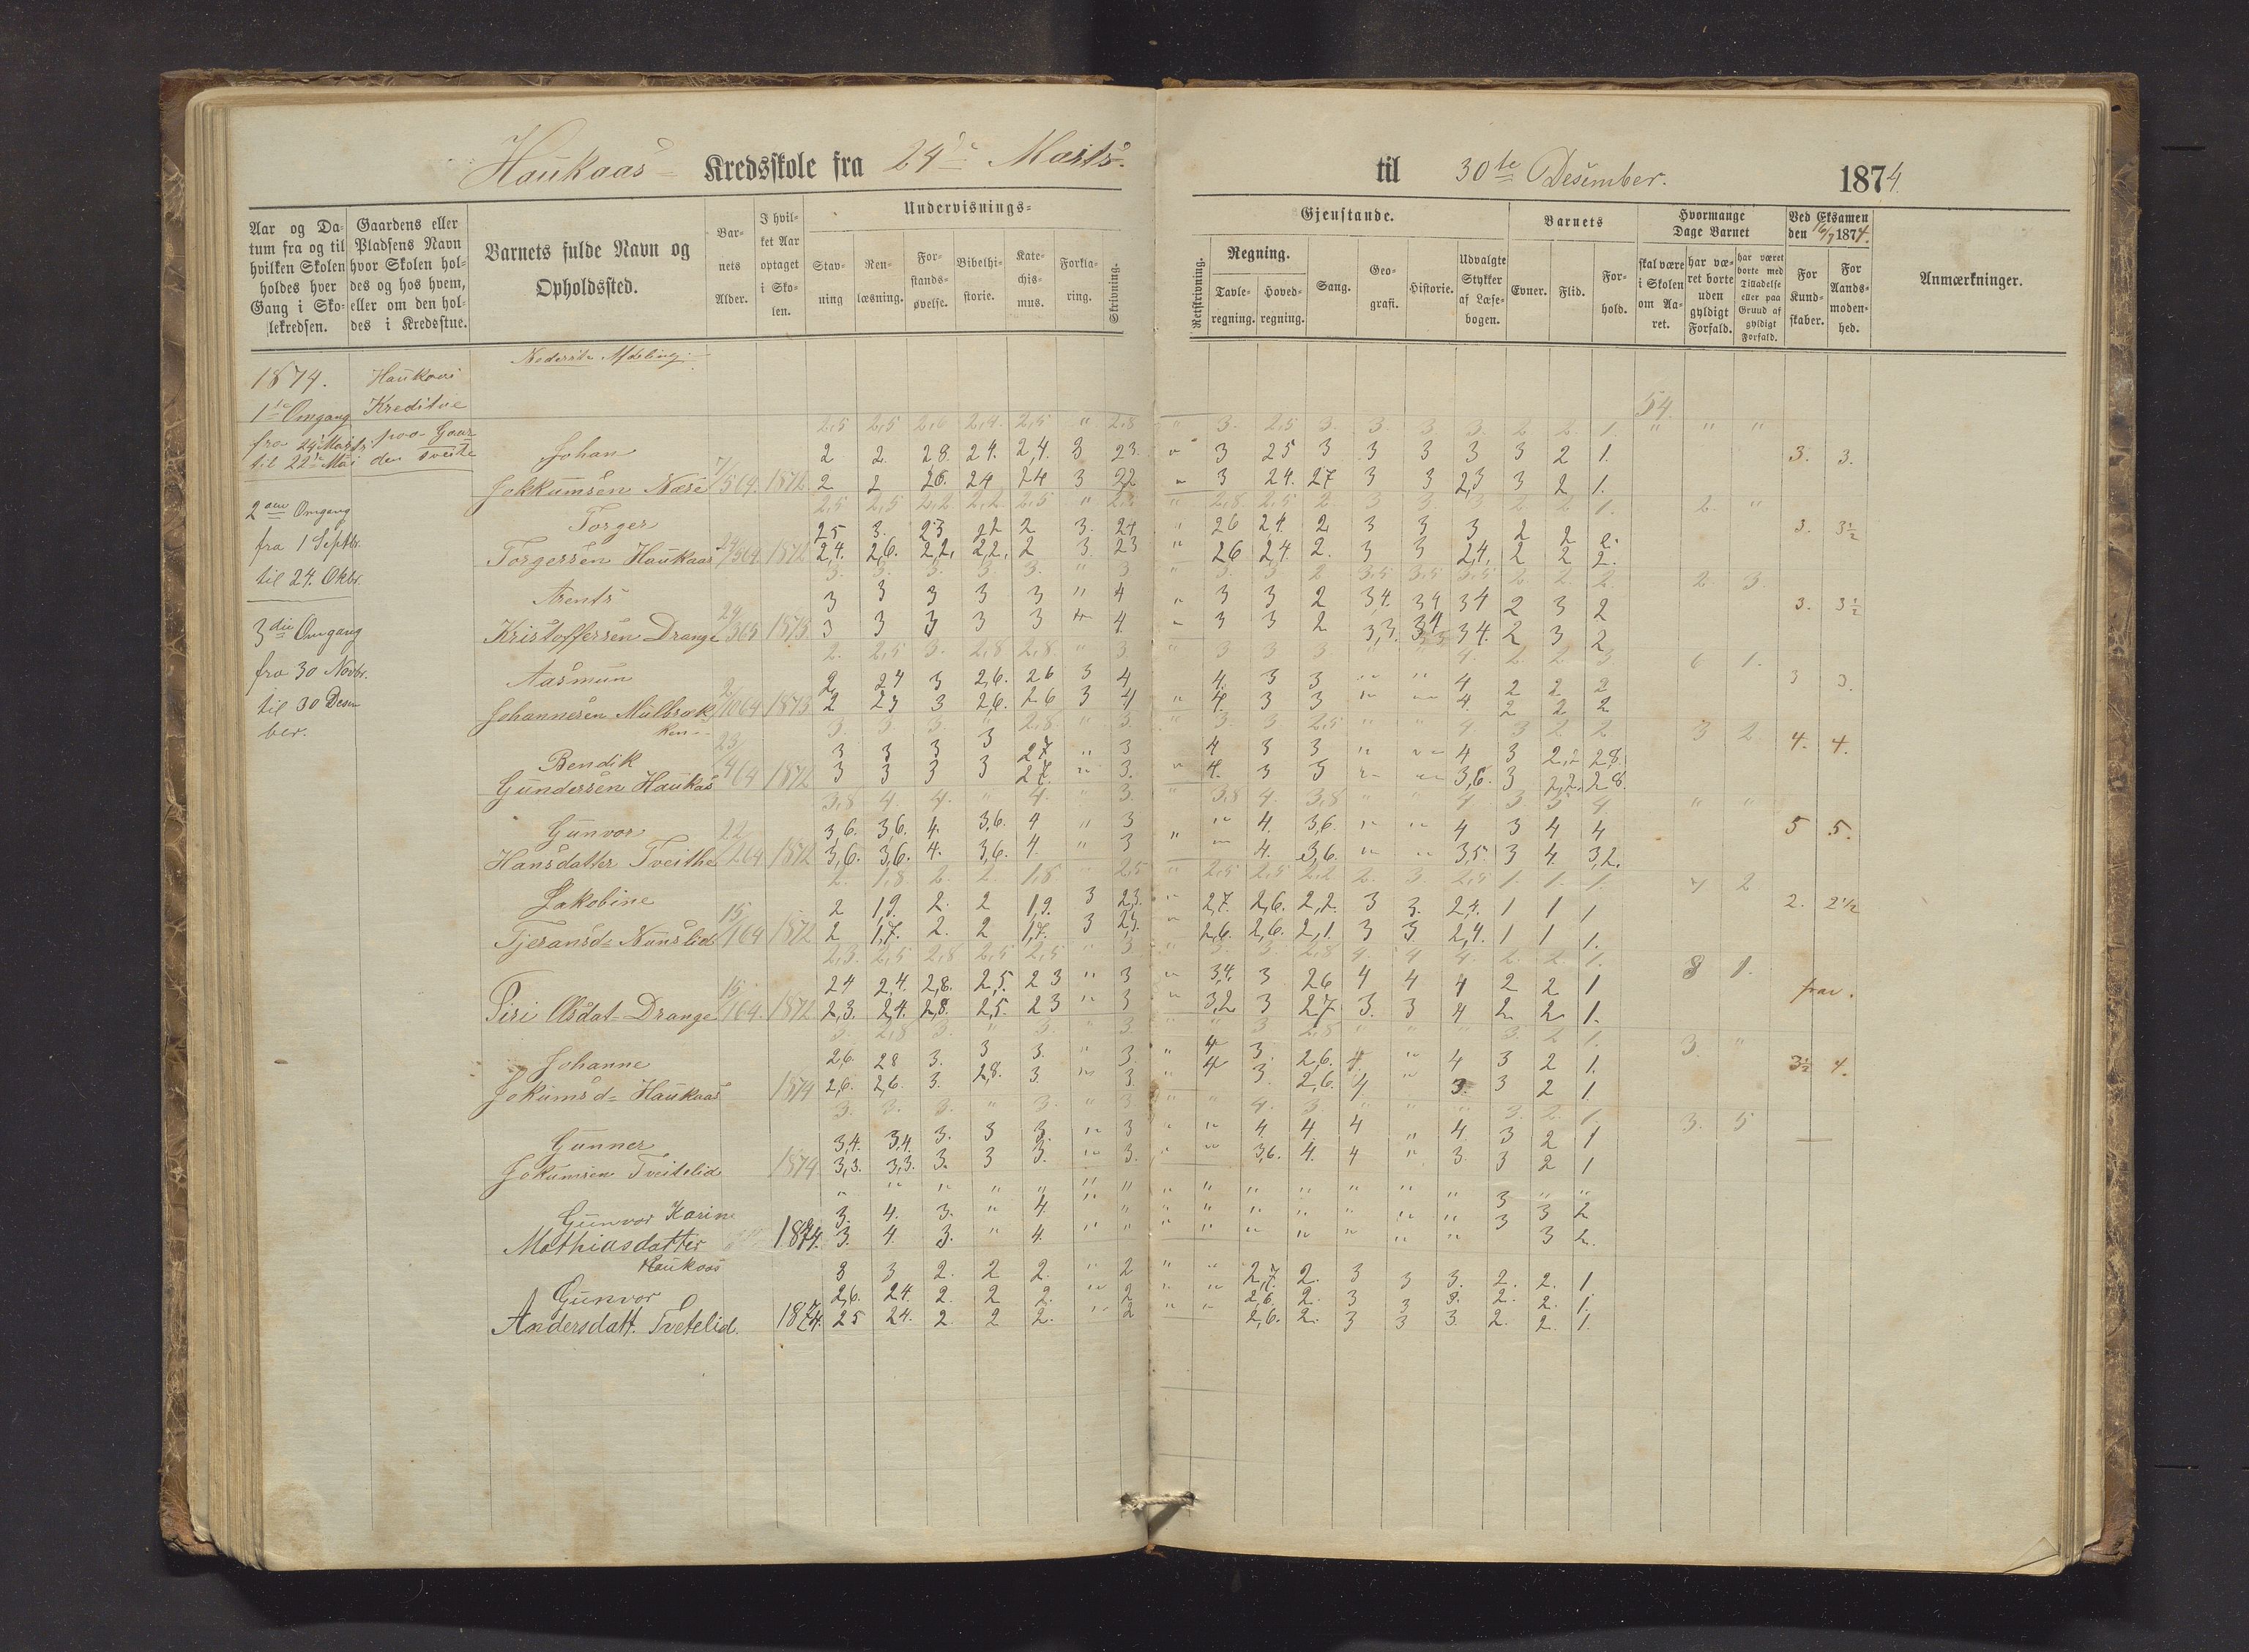 Haukaas Kredsskole fra 24de Marts.
til 30te Desember. 1874.
Aar og Da-
tum fra og til
hvilken Skolen
holdes hver
Gang i Sko-
lekredsen.
Gaardens eller
Pladsens Navn
hvor Skolen hol-
des og hos hvem,
eller om den hol-
des i Kredsstue.
Barnets fulde Navn og
Opholdssted.
Bar-
nets
Alder.
I hvil-
ket Aar
optaget
i Sko-
len.
Undervisnings-
Stav-
ning
Ren-
læsning.
For-
stands-
øvelse.
Bibelhi-
storie.
Kate-
chis-
mus.
Forkla-
ring.
Skrivning.
Gjenstande.
Retskrivning.
Regning.
Tavle-
regning.
Hoved-
regning.
Sang.
Geo-
grafi.
Historie.
Udvalgte
Stykker
af Læse-
bogen.
Barnets
Evner.
Flid.
For-
hold.
Hvormange
Dage Barnet
skal være
i Skolen
om Aa-
ret.
har væ-
ret borte
uden
gyldigt
Forfald.
har været
borte med
Tilladelse
eller paa
Grund af
gyldigt
Forfald.
Ved Eksamen
den 16/7 1874.
For
Kund-
skaber.
For
Aands-
moden-
hed.
Anmærkninger.
1874.
1ste Omgang
fra 24de Marts
til 22de Mai
2den Omgang
fra 1 Septbr.
til 24. Okbr.
3die Omgang
fra 30 Novbr.
til 30 Desem
ber.
Haukaas
paa Gaar-
den Tveite
Nederste Afdeling.
54.
2,5 2,5 2,6 2,4. 2,5 " 2,8 " 3. 2,5 3. 3. 3. 3. 2 2. 1. " " "
Johan 2 2. 2,8. 24. 2,4. 3 23 " 3 25 3 3 3 3 3 2 1. 3. 3.
Jokkumsen Næse 7/5 64. 1872. 2 2 26. 24 24 3 22 " 3 24. 27 3 3 2,3 3 2 1.
Torger 25 3. 23 22 2 3. 24 " 26 24. 2 3 3 3 2 2 2. 3. 3½
Torgersen Haukaas 1872 2,4. 2,6. 2,2. 2,2. 2 3. 23 " 26 2,4. 2. 3 3 2,4. 2 2 2.
3. 3. 3. 3 3. " 3 " 3. 3 2 3,5 3,5 3,5 2. 2. 2. 2. 3.
Arents 3 3 3 3 3 " 4 " 3 3 2 34. 34 34 2 3 2 3. 3½
Kristoffersen Drange 1873. 3 3 3 3 3 " 4. " 3 3 2 3,3. 34 34. 2 3 2
2. 2,5 3. 2,8 2,8. " 3 " 3 3 3. " " 4. 2. 2. 3 6 1.
Aasmun 2 24 3 2,6. 26 3 4 4. 3 3 " " 4 2 2 2 3 3.
Johannesen Mülbrok 1873 2 23 3 2,6. 26 3 4 " 4. 3 3 " " 4. 2 2 2
ken
3. 3 3 " 2,8. " 3. " 3. 3 2,5 " " 4 3 2. 2 3 2
Bendik 3 3 3 3 27 " 3 4 3 3 " " 4 3 2,2 28. 4. 4.
Gundersen Haukas 23/4 64 1872 3 3 3 3 27. " 3. " 4. 3 3 " " 3,6. 3 2,2. 28.
3,8 4. 4. " 4. " 3. " 3,8 4. 3,8 " " 4 3. 3 4 " "
Gunvor 3,6. 3,6. 4. 3,6. 4 " 3 " 4. 3,6. " " 4 3 4 4 5 5.
Hansdatter Tveithe 22/2 64 1872 3,6. 3,6. 4. 3,6. 4. " 3 " " 4. 3,6. " " 3,5. 3 4. 3,2.
2. 1,8 2. 2. 1,8 " 2,5 " 2,5 2,5 2,2 2. 3. 2,5 1. 1. 1. 4 2
Jakobine 2 1,9. 2. 2 1,9. 3 2,3. " 2,7. 2,6. 2,2. 3 3. 2,4. 1 1 1 2. 2½
Tjeransd= Nunslid 15/1 64 1872 2 1,7. 2. 2 1,7. 3 23. " 2,6. 2,6. 2,1. 3 3 2,4. 1 1 1.
2,3. 2,5 2,8 2,5 2,5 " 3 " 3. 3. 2,8 4. 4 4. 2. 2. 1. 8 1.
24 2,4. 2,8. 2,5. 23 " 3 " 3,4. 3 26 4 4 4 2 2 1 frav.
Siri Olsdat- Drange 15/1 64. 1872 2,3. 2,4. 2,8. 2,5. 23 " 3 " 3,2 3 27 3. 3 4 2 2 1.
3. 2,8 3. " 3. " 3. " " 3 2,8 " " " 3. 2. 1. 3. "
Johanne 26. 28 3. 3 3. " 3. " 4 3. 2,6. 4. " 4 3 2 1. 3½ 4.
Jokumsd= Haukaas 1874 2,6. 2,6. 3. 2,8. 3. " 3. " 4 3. 2,6. 4. " 3. 3 2 1.
3. 3. 3. " 3. " 3 " " 4. 3. " " " 3. 2. 1. 3. 5
Gunner 3,4. 3,4. 3. 3 3. " 3 " " 4. 4. 4 " 4. 3 2 1
Jokumsen Tveitelid 1874 3,3. 3,3. 3. 3 3. " 3. " " 3,6. 4. 4 " 3. 3 2 1
" " " " " " " " " " " " " " 3 " "
Gunvor Karine 3. 4. 3. " 4. " " " " " " " " " 3 3 2
Mathiasdatter 1874. 3. 4. 3. " 4. " " " " " " " " " 3 2.
Haukaas
3 3 2. 2 2. " 2 " " 2,7. 2. 3 3 3. 2. 2. 1
Gunvor 2,6. 24. 2. 2 2. " 2 " " 2,6. 2. 3 3 3. 2. 2. 1.
Andersdatt. Tvetelid. 1874. 25 24. 2. 2 2. " 2 " " 2,6. 2. 3 3 3. 2. 2. 1.